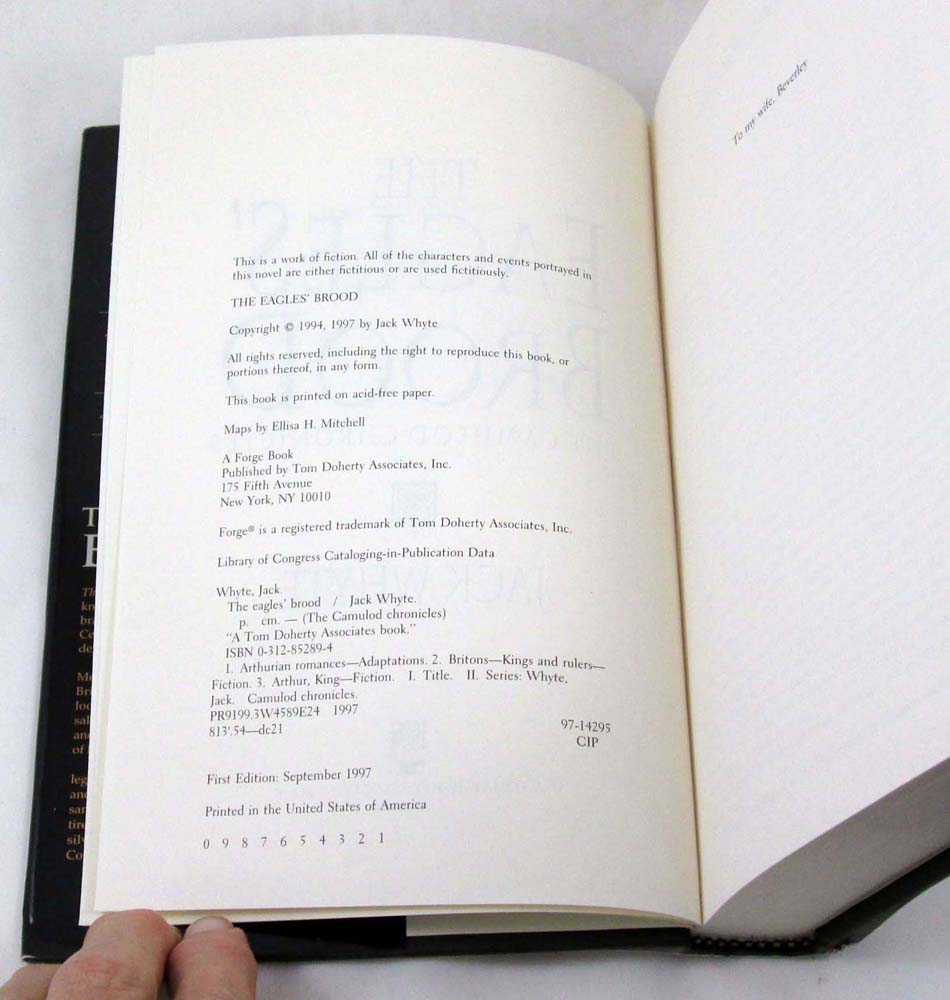 This is a work of fiction. All of the characters and events portrayed in
this novel are either fictitious or are used fictitiously.
THE EAGLES' BROOD
Copyright © 1994, 1997 by Jack Whyte
All rights reserved, including the right to reproduce this book, or
portions thereof, in any form.
This book is printed on acid-free paper.
Maps by Ellisa H. Mitchell
A Forge Book
Published by Tom Doherty Associates, Inc.
175 Fifth Avenue
New York, NY 10010
Forge® is a registered trademark of Tom Doherty Associates, Inc.
Library of Congress Cataloging-in-Publication Data
Whyte, Jack.
The eagles' brood / Jack Whyte.
p. cm. — (The Camulod chronicles)
"A Tom Doherty Associates book."
ISBN 0-312-85289-4
1. Arthurian romances—Adaptations. 2. Britons—Kings and rulers—
Fiction. 3. Arthur, King—Fiction. I. Title. II. Series: Whyte,
Jack. Camulod chronicles.
PR9199.3W4589E24 1997
813'.54—dc21
97-14295
CIP
First Edition: September 1997
Printed in the United States of America
0 9 8 7 6 5 4 3 2 1
To my wife, Beverley